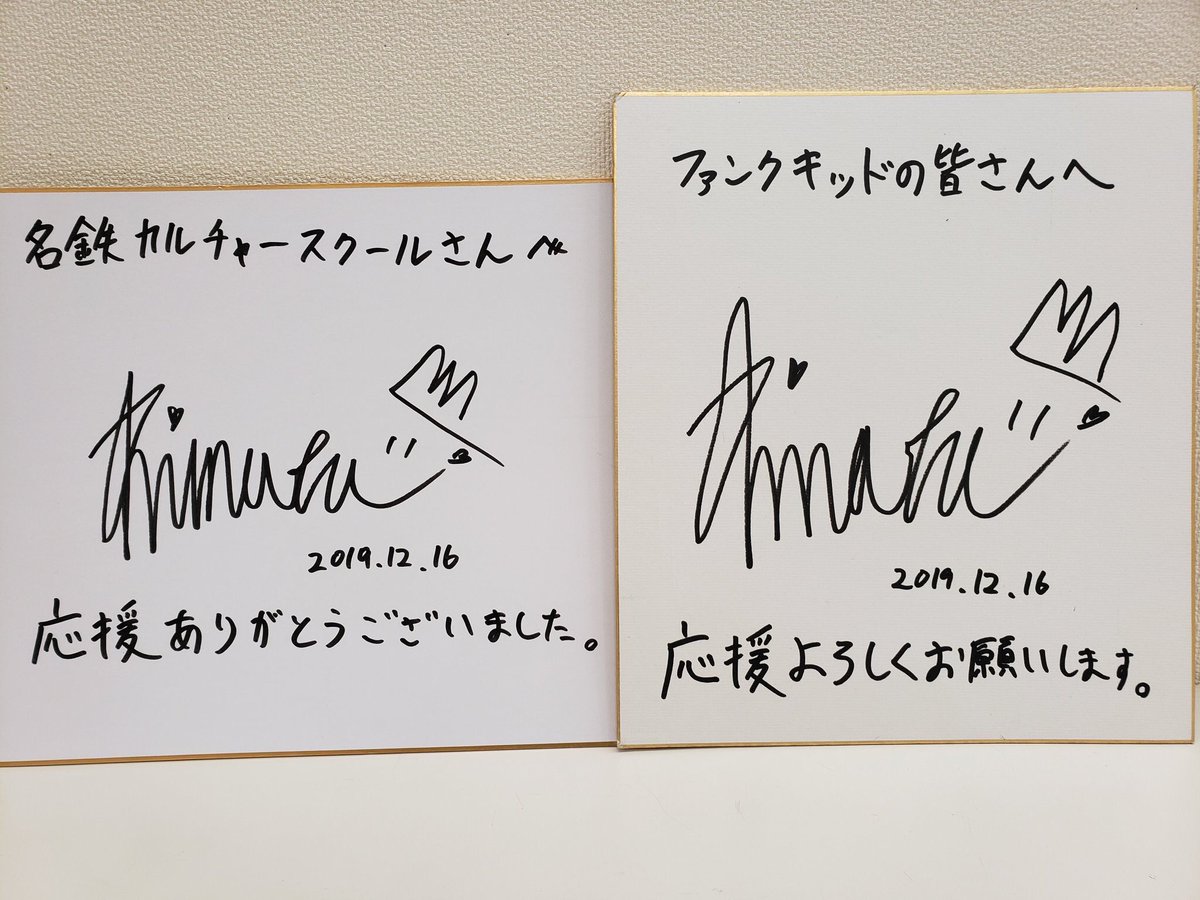 名鉄カルチャースクールさんへ
2019.12.16
応援ありがとうございました。
ファンクキッドの皆さんへ
2019.12.16
応援よろしくお願いします。